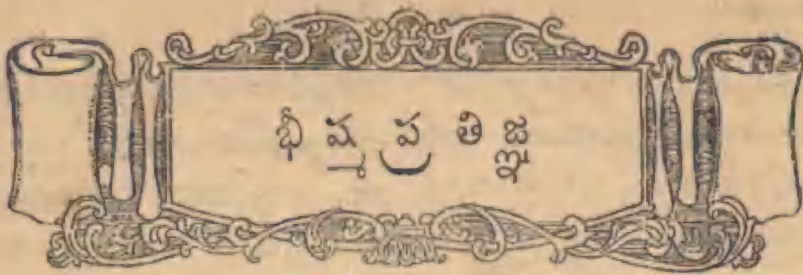 భీ ష్మ ప్ర తి జ్ఞ